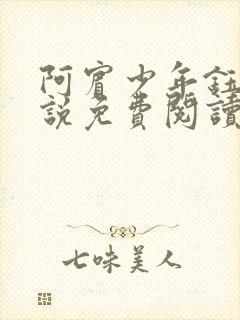 阿賓少年鈺
說免費閱讀
七味美人